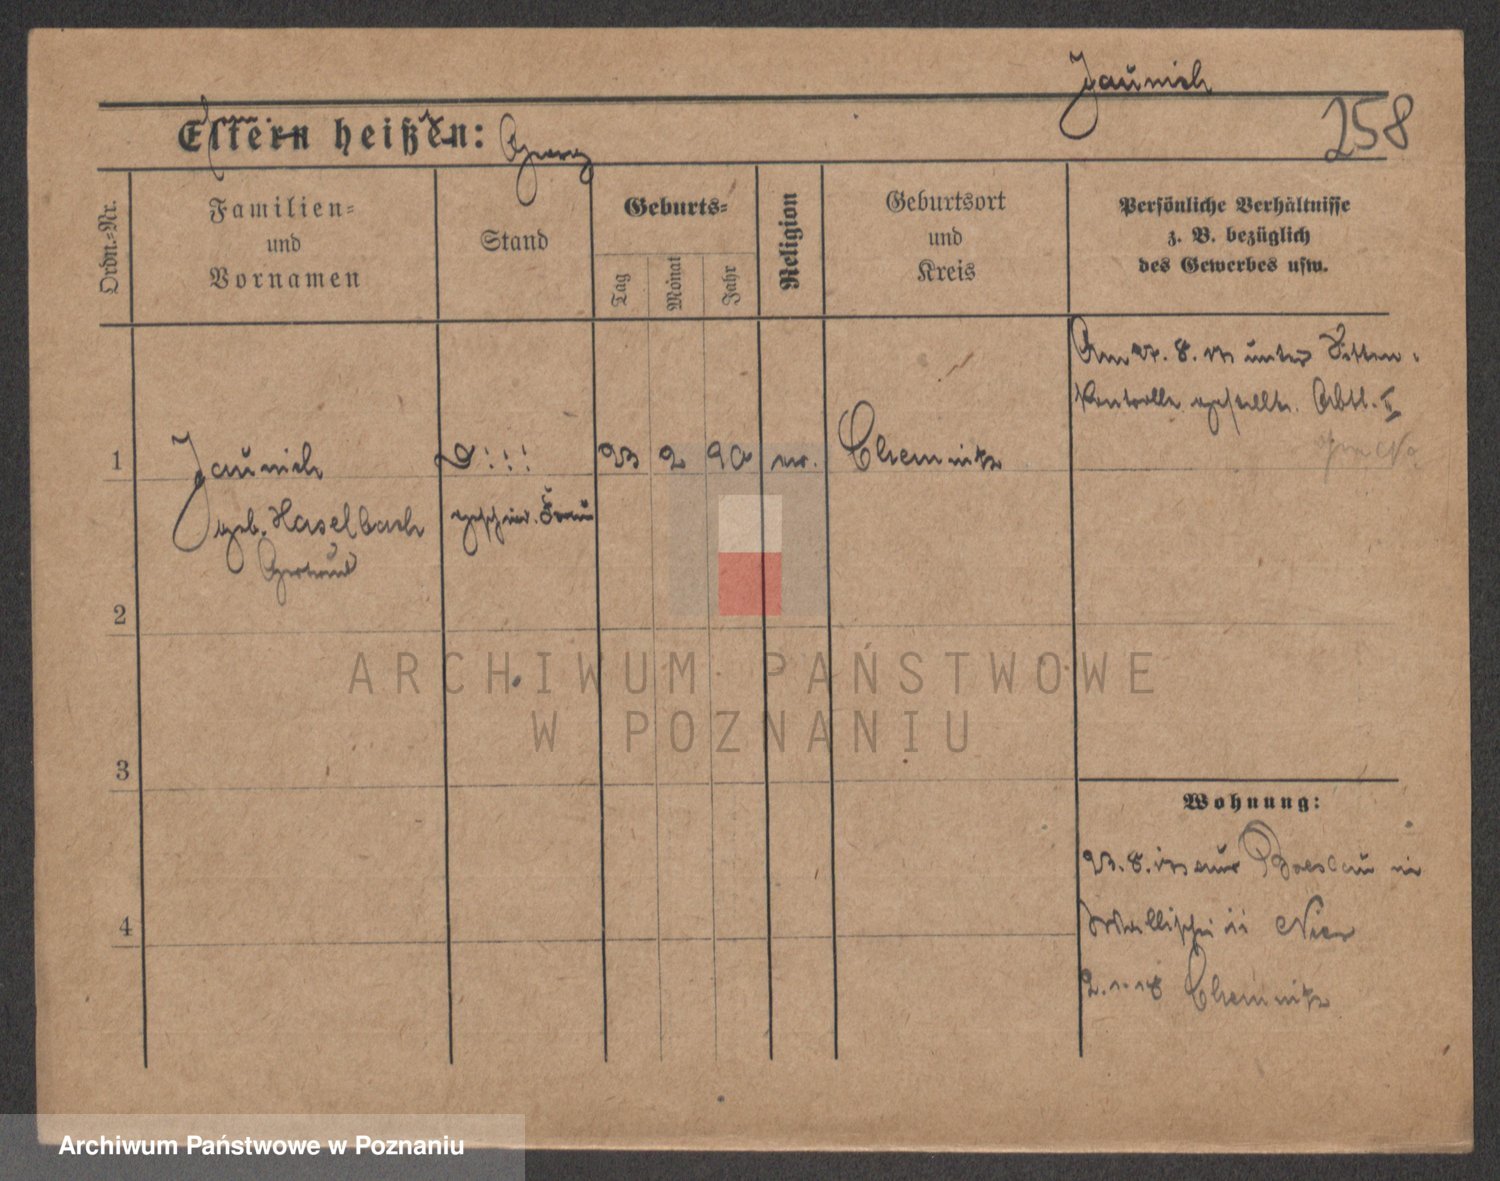 Jaunich
258
Eltern heißen: Georg
Ordn.-Nr.
Familien-
und
Vornamen
Stand
Geburts-
Tag
Monat
Jahr
Religion
Geburtsort
und
Kreis
Persönliche Verhältnisse
z. B. bezüglich
des Gewerbes usw.
8. unter Sitten-
Kontrolle gestellt. Abtl. I
1
Jaunich
geb. Haselbach
Gertrud
gesch. Frau
23 2 90
ev.
Chemnitz
2
3
4
Wohnung:
23. 8. aus Breslau in
Wallischei
Chemnitz
ARCHIWUM PAŃSTWOWE
W POZNANIU
Archiwum Państwowe w Poznaniu